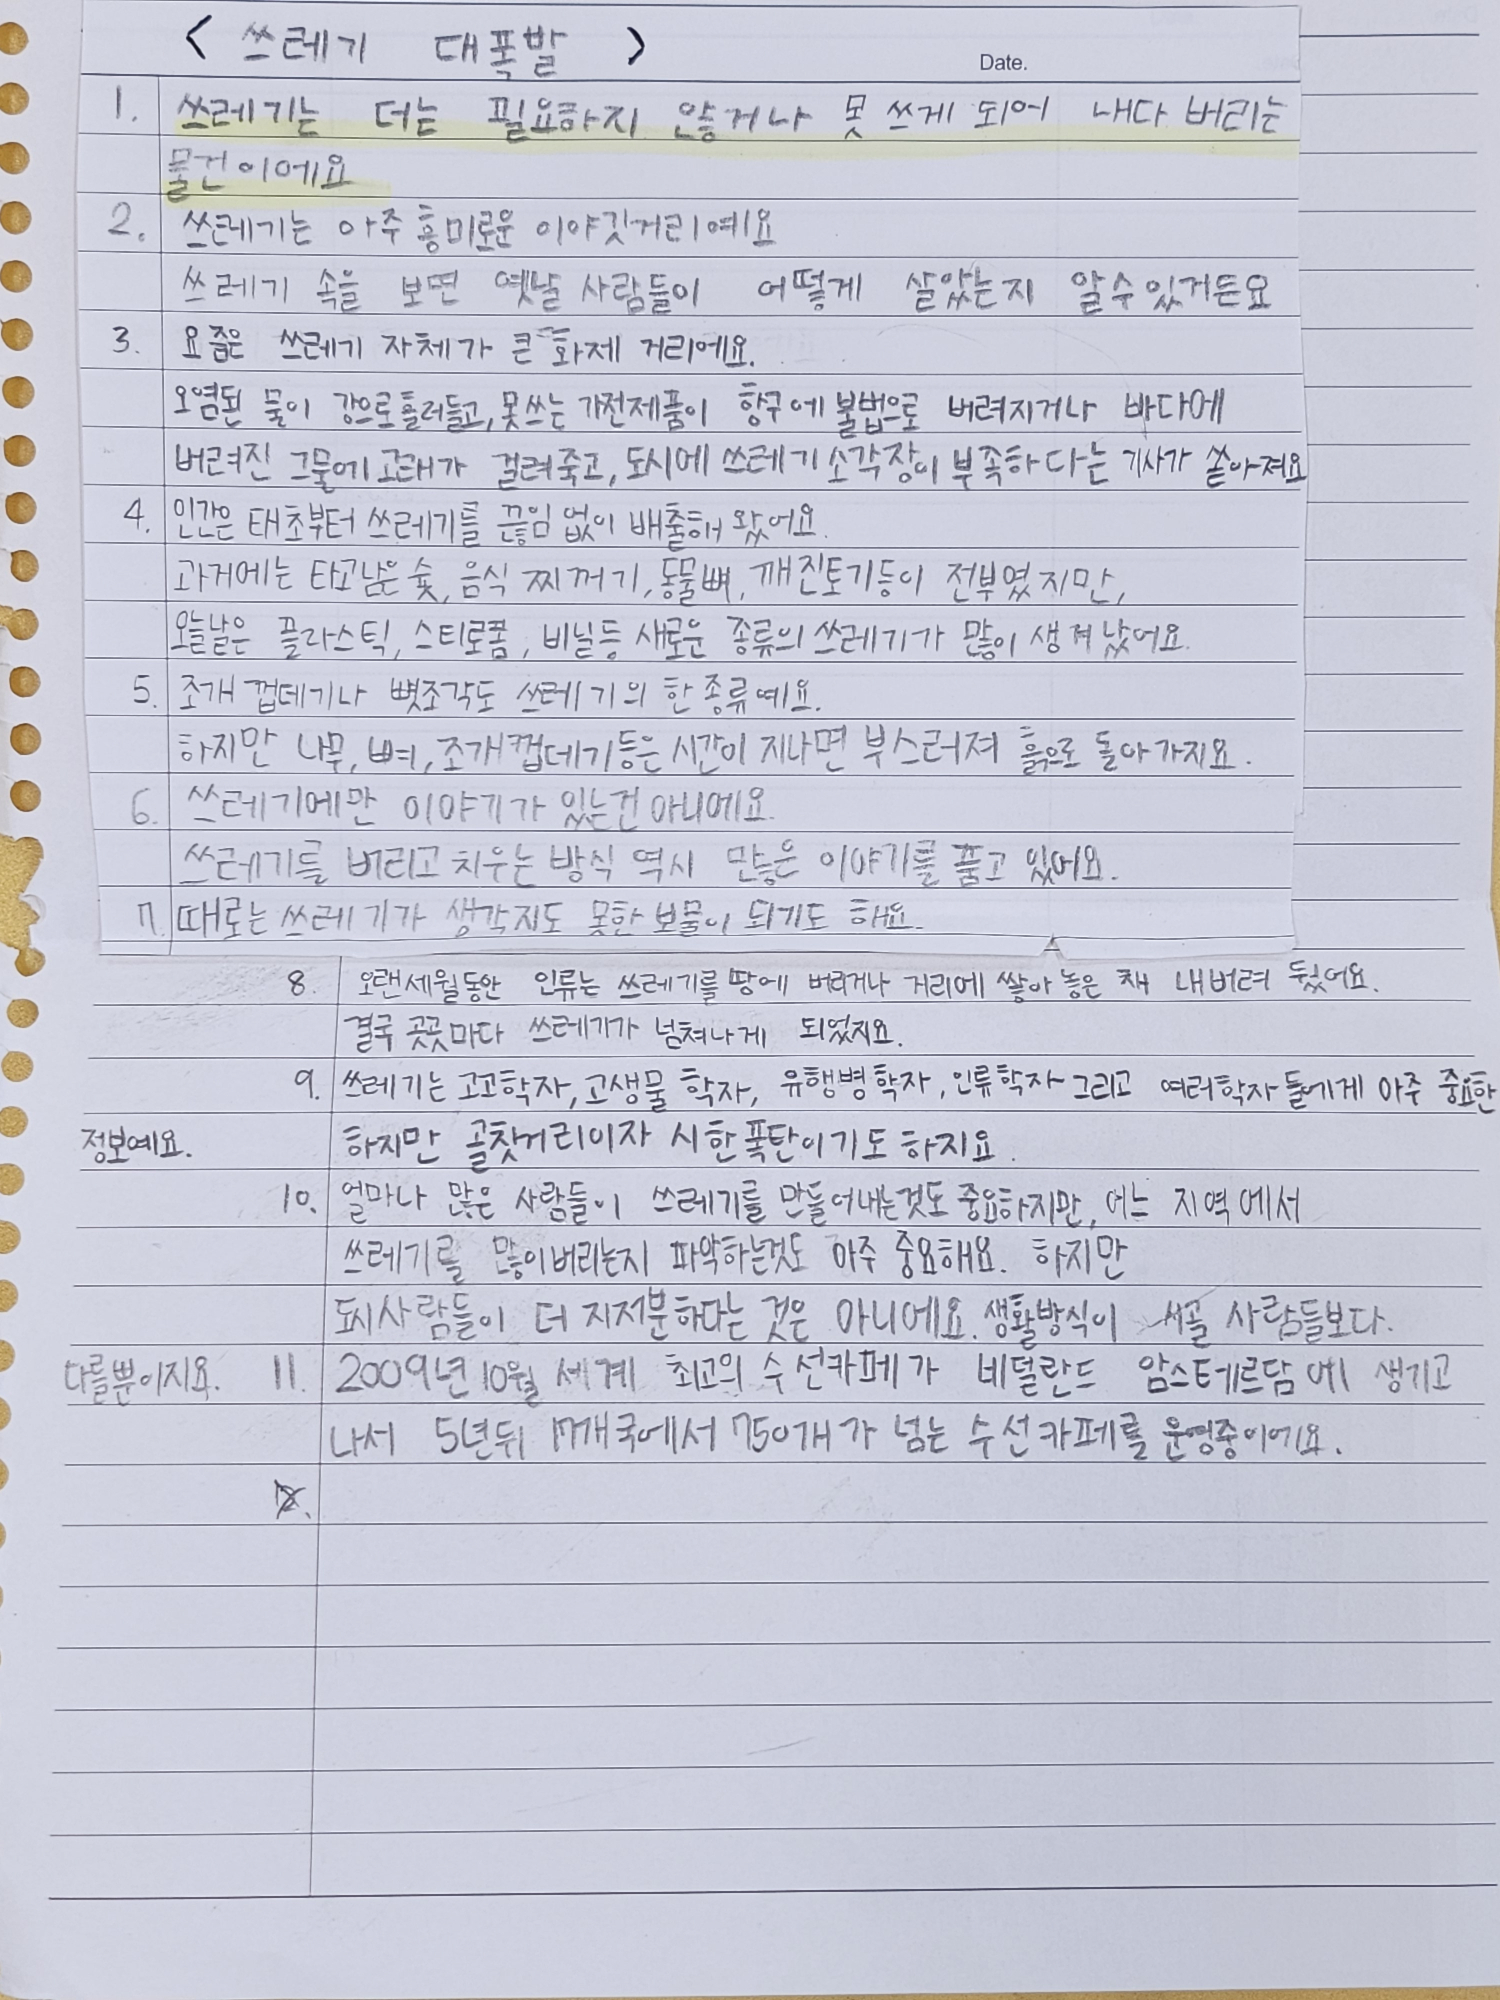 < 쓰레기 대폭발 >
Date.
1. 쓰레기는 더는 필요하지 않거나 못 쓰게 되어 내다 버리는
물건이에요
2. 쓰레기는 아주 흥미로운 이야깃거리예요
쓰레기 속을 보면 옛날 사람들이 어떻게 살았는지 알수있거든요
3. 요즘은 쓰레기 자체가 큰 화제 거리에요.
오염된 물이 강으로흘러들고, 못쓰는 가전제품이 항구에 불법으로 버려지거나 바다에
버려진 그물에 고래가 걸려죽고, 도시에 쓰레기 소각장이 부족하다는 기사가 쏟아져요
4. 인간은 태초부터 쓰레기를 끊임 없이 배출해 왔어요.
과거에는 타고남은 숯, 음식 찌꺼기, 동물뼈, 깨진토기등이 전부였지만,
오늘날은 플라스틱, 스티로폼, 비닐등 새로운 종류의 쓰레기가 많이 생겨났어요.
5. 조개 껍데기나 뼛조각도 쓰레기의 한 종류예요.
하지만 나무, 뼈, 조개껍데기등은 시간이 지나면 부스러져 흙으로 돌아가지요.
6. 쓰레기에만 이야기가 있는건 아니에요.
쓰레기를 버리고 치우는 방식 역시 많은 이야기를 품고 있어요.
7. 때로는 쓰레기가 생각지도 못한 보물이 되기도 해요.
8. 오랜세월동안 인류는 쓰레기를 땅에 버리거나 거리에 쌓아 놓은 채 내버려 뒀어요.
결국 곳곳마다 쓰레기가 넘쳐나게 되었지요.
9. 쓰레기는 고고학자, 고생물 학자, 유행병학자, 인류학자 그리고 여러학자 들에게 아주 중요한
정보예요. 하지만 골칫거리이자 시한폭탄이기도 하지요.
10. 얼마나 많은 사람들이 쓰레기를 만들어내는것도 중요하지만, 어느 지역에서
쓰레기를 많이버리는지 파악하는것도 아주 중요해요. 하지만
도시사람들이 더 지저분하다는 것은 아니에요. 생활방식이 시골 사람들보다.
다를뿐이지요. 11. 2009년 10월 세계 최고의 수선카페가 네덜란드 암스테르담에 생기고
나서 5년뒤 17개국에서 750개가 넘는 수선카페를 운영중이에요.